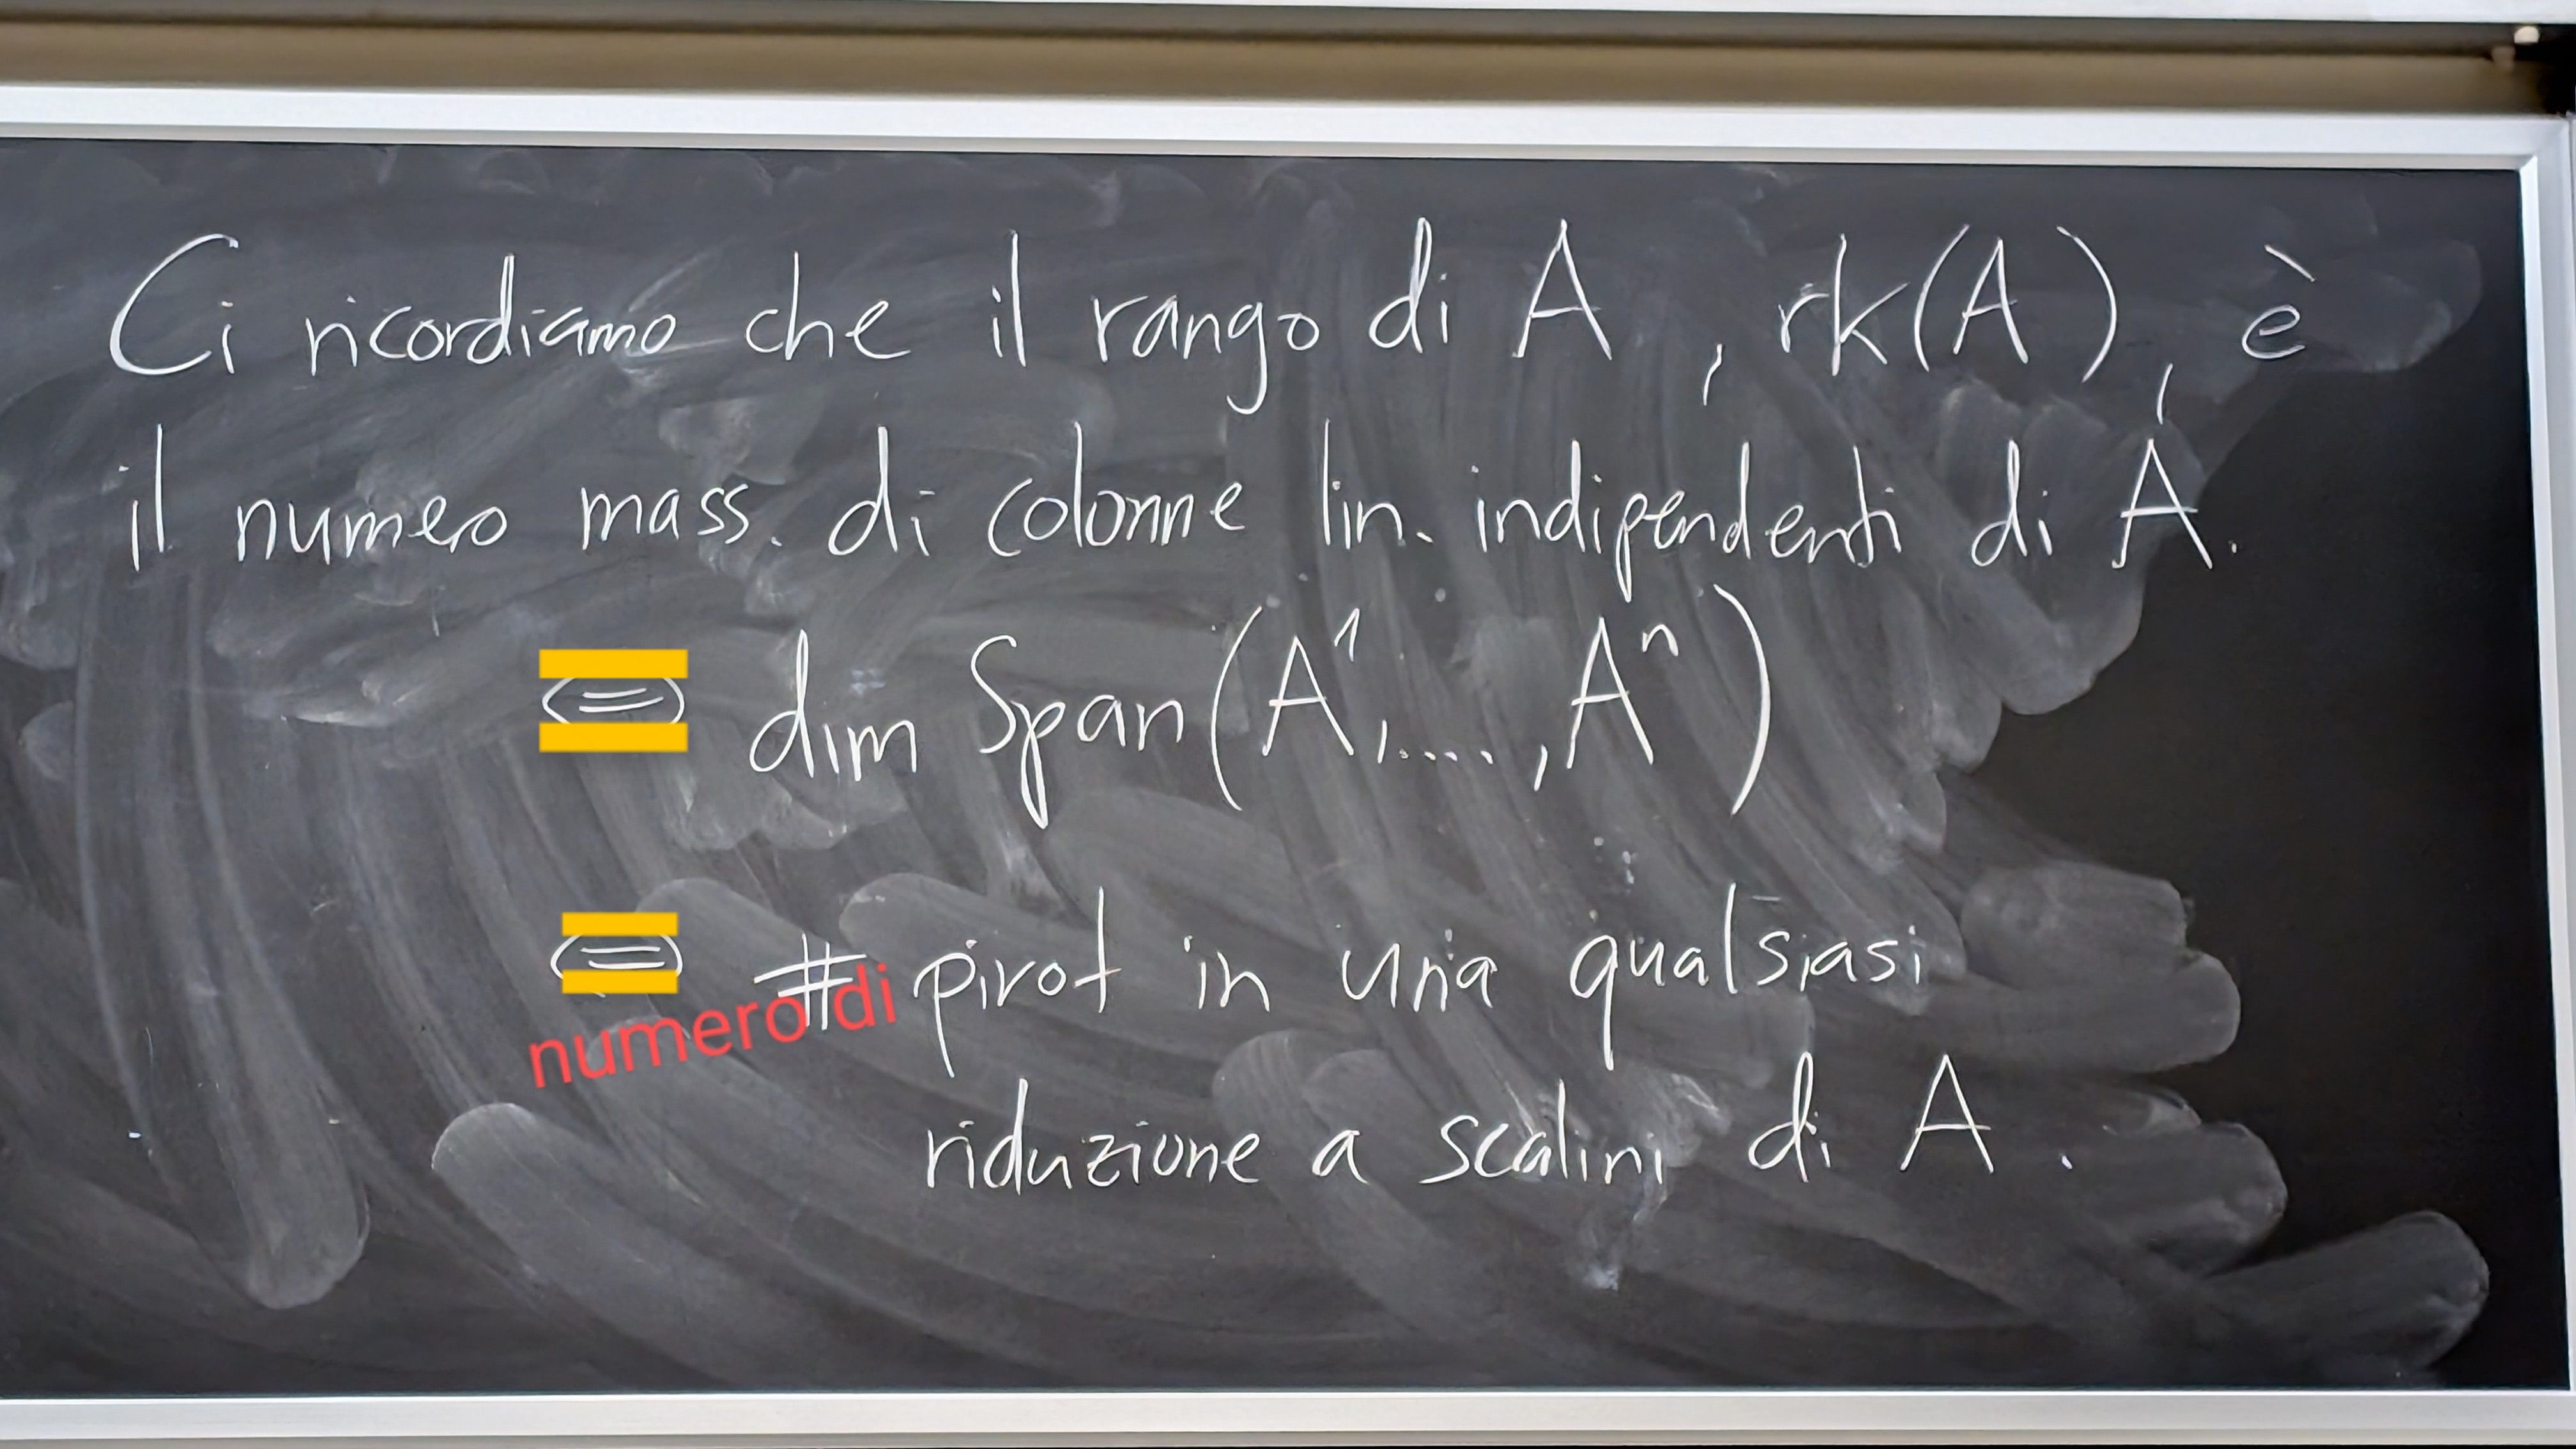 Ci ricordiamo che il rango di A, rk(A), è
il numero mass. di colonne lin. indipendenti di A.
(=) dim Span(A¹,....,Aⁿ)
(=) # pivot in una qualsiasi
numero di
riduzione a scalini di A.